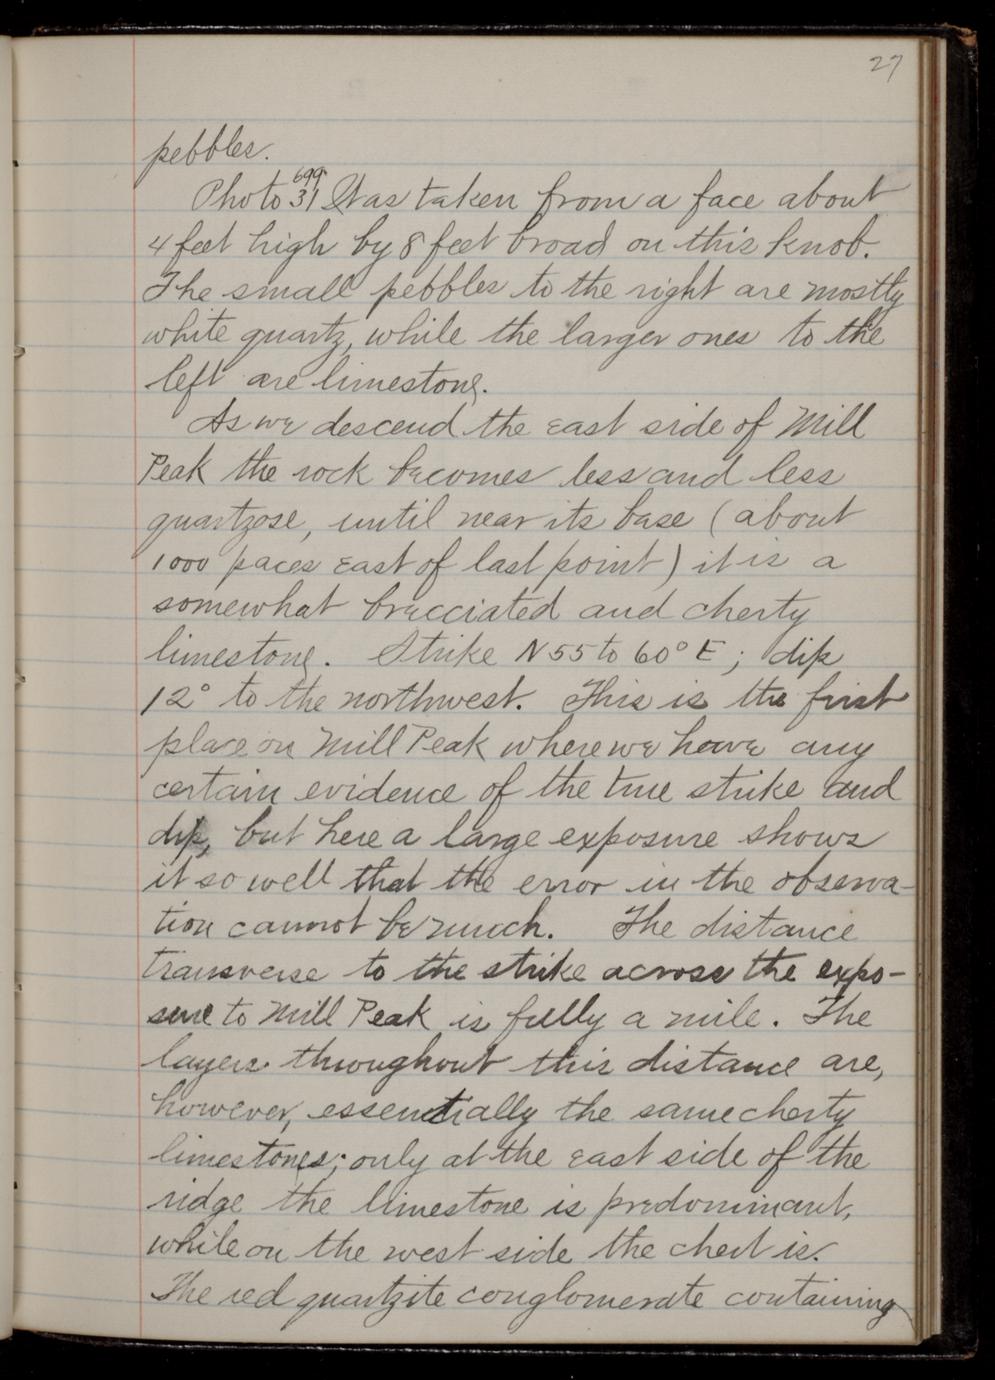 27
pebbles.
699
Photo 31 Was taken from a face about
4 feet high by 8 feet broad on this knob.
The small pebbles to the right are mostly
white quartz, while the larger ones to the
left are limestone.
As we descend the east side of Mill
Peak the rock becomes less and less
quartzose, until near its base (about
1000 paces east of last point) it is a
somewhat brecciated and cherty
limestone. Strike N 55 to 60° E; dip
12° to the northwest. This is the first
place on Mill Peak where we have any
certain evidence of the true strike and
dip, but here a large exposure shows
it so well that the error in the observa-
tion cannot be much. The distance
transverse to the strike across the expo-
sure to Mill Peak is fully a mile. The
layers throughout this distance are,
however, essentially the same cherty
limestones; only at the east side of the
ridge the limestone is predominant,
while on the west side the chert is.
The red quartzite conglomerate containing